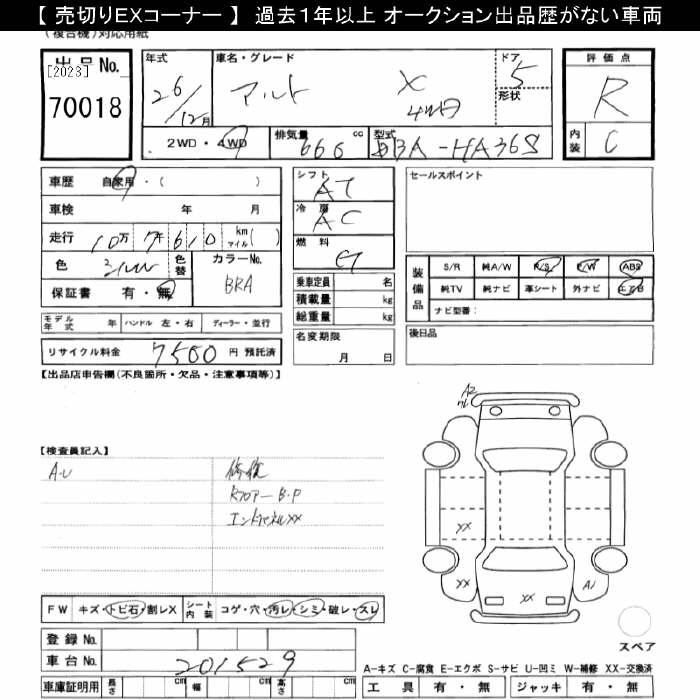 【 売切りEXコーナー 】 過去１年以上 オークション出品歴がない車両
(複合機)対応用紙
出品No.
[2023]
70018
年式
26/12月
車名・グレード
アルト X
4WD
ドア
5
形状
評価点
R
内装
C
2WD・4WD
排気量 660 cc
型式 DBA-HA36S
車歴 自家用・( )
車検 年 月
走行 10万 7千 610 km マイル( )
色 シルバー
色替
カラーNo.
BRA
保証書 有・無
シフト
AT
冷房
AC
燃料
G
乗車定員 名
積載量 kg
総重量 kg
セールスポイント
装備品
S/R 純A/W P/S P/W ABS
純TV 純ナビ 革シート 外ナビ エアB
ナビ型番：
モデル年式 年 ハンドル 左・右 ディーラー・並行
リサイクル料金 7500 円 預託済
名変期限
月 日
後日品
【出品店申告欄(不良箇所・欠品・注意事項等)】
【検査員記入】
A.U
修復
RフロアーB.P
エンドパネルXX
A2
XX
XX
XX
A1
FW キズ・トビ石・割レX
シート内装 コゲ・穴・汚レ・シミ・破レ・スレ
登録No.
車台No. 201529
スペア
A—キズ C—腐食 E—エクボ S—サビ U—凹ミ W—補修 XX—交換済
車庫証明用 長さ cm 幅 cm 高さ cm
工具 有・無 ジャッキ 有・無